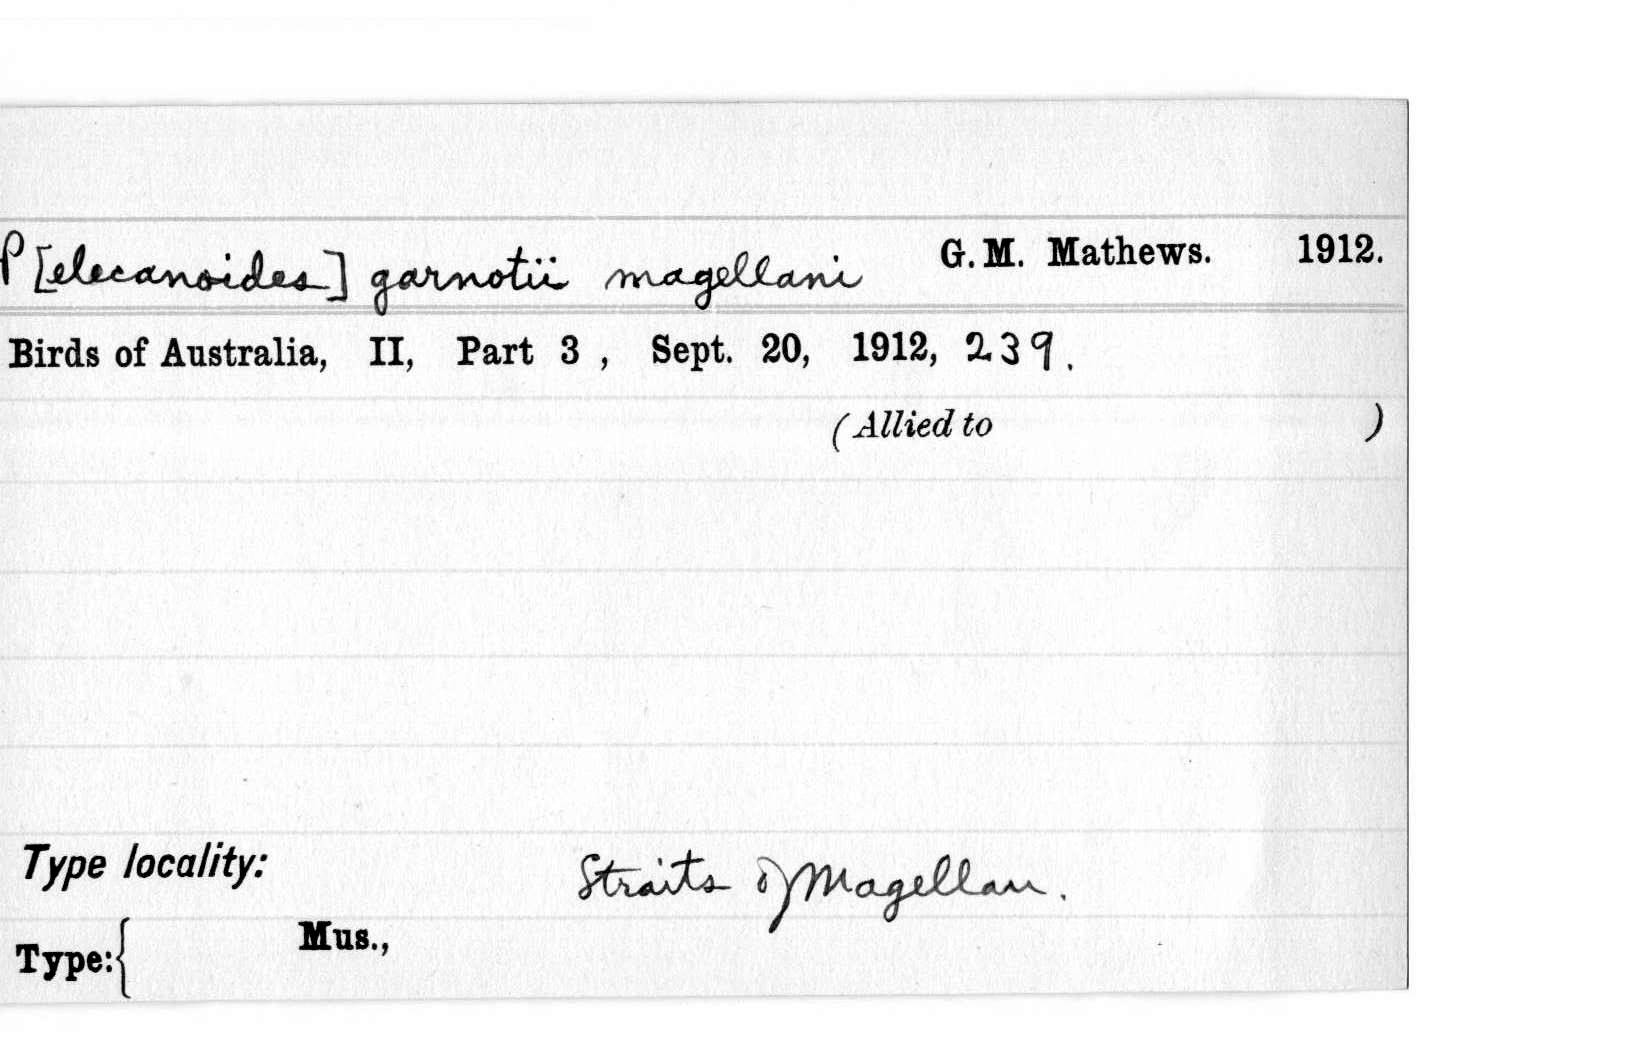 P[elecanoides] garnotii magellani G. M. Mathews. 1912.
Birds of Australia, II, Part 3 , Sept. 20, 1912, 239.
(Allied to )
Type locality: Straits of Magellan.
Type:{ Mus.,